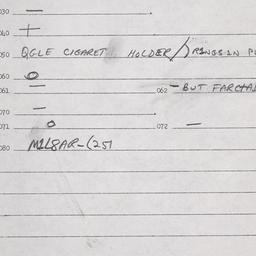 030 —
040 +
050 QGLE CIGARET HOLDER / RINGS IN P
060 O
061 — 062 — BUT FARCHA
070 —
071 O 072 —
080 M1L8AR-(251